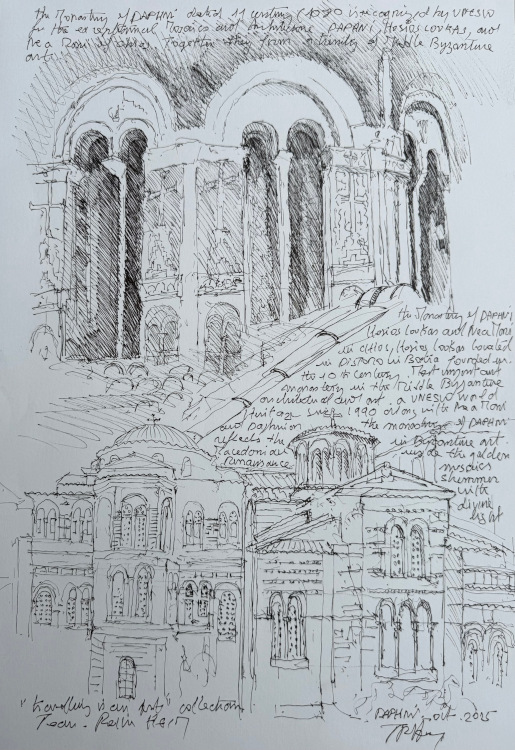 the Monastery of DAPHNI dated 11 century (1080 is recognized by UNESCO
for the exceptional Mosaics and Architecture. DAPHNI, Hosios Loukas, and
Nea Moni of chios, together they form a trinity of Middle Byzantine
art.
the Monastery of DAPHNI
Hosios Loukas and Nea Moni
in chios, Hosios Loukas located
in DISTOMO in Boetia founded in
the 10 th century. Most important
monastery in the Middle Byzantine
architectural and art. a UNESCO World
Heritage since 1990 along with Nea Moni
and Daphnion the monastery of DAPHNI
reflects the in Byzantine art.
Macedonian inside the golden
Renaissance mosaics
shimmer
with
divine
light
"travelling is an Art" collection
Jean-
DAPHNI, oct. 2025